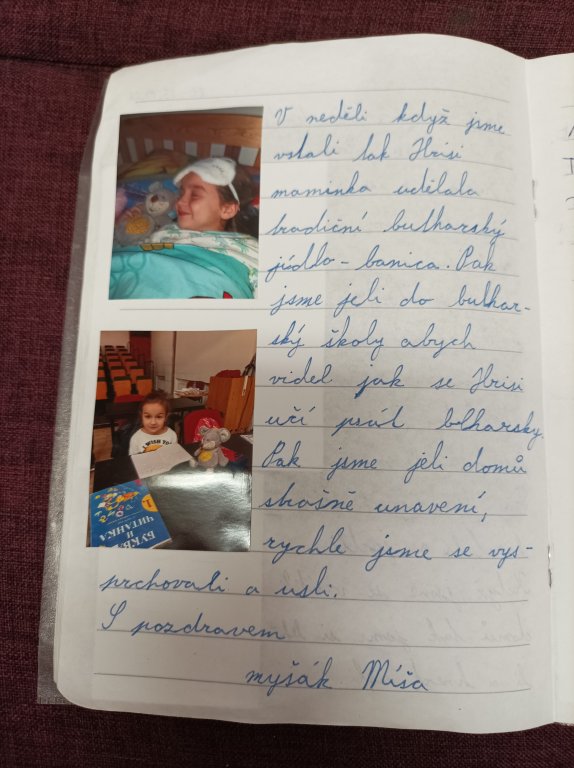 V neděli když jsme
vstali tak Hrisi
maminka udělala
tradiční bulharský
jíddlo - banica. Pak
jsme jeli do bulhar-
ský školy abych
videl jak se Hrisi
učí psát blharsky.
Pak jsme jeli domů
skašně unavení,
rychle jsme se vys-
prchovali a usli.
S pozdravem
myšák Míša
I WISH TO
БУКВАР
И
ЧИТАНКА
1